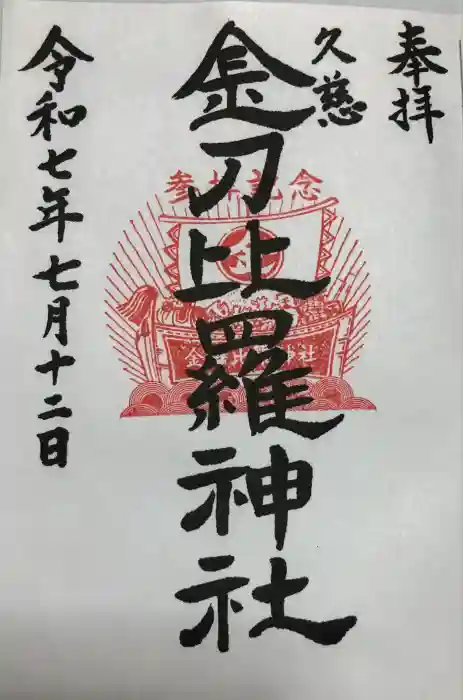 奉拝
久慈
金刀比羅神社
令和七年七月十二日
参拝記念
金刀比羅神社